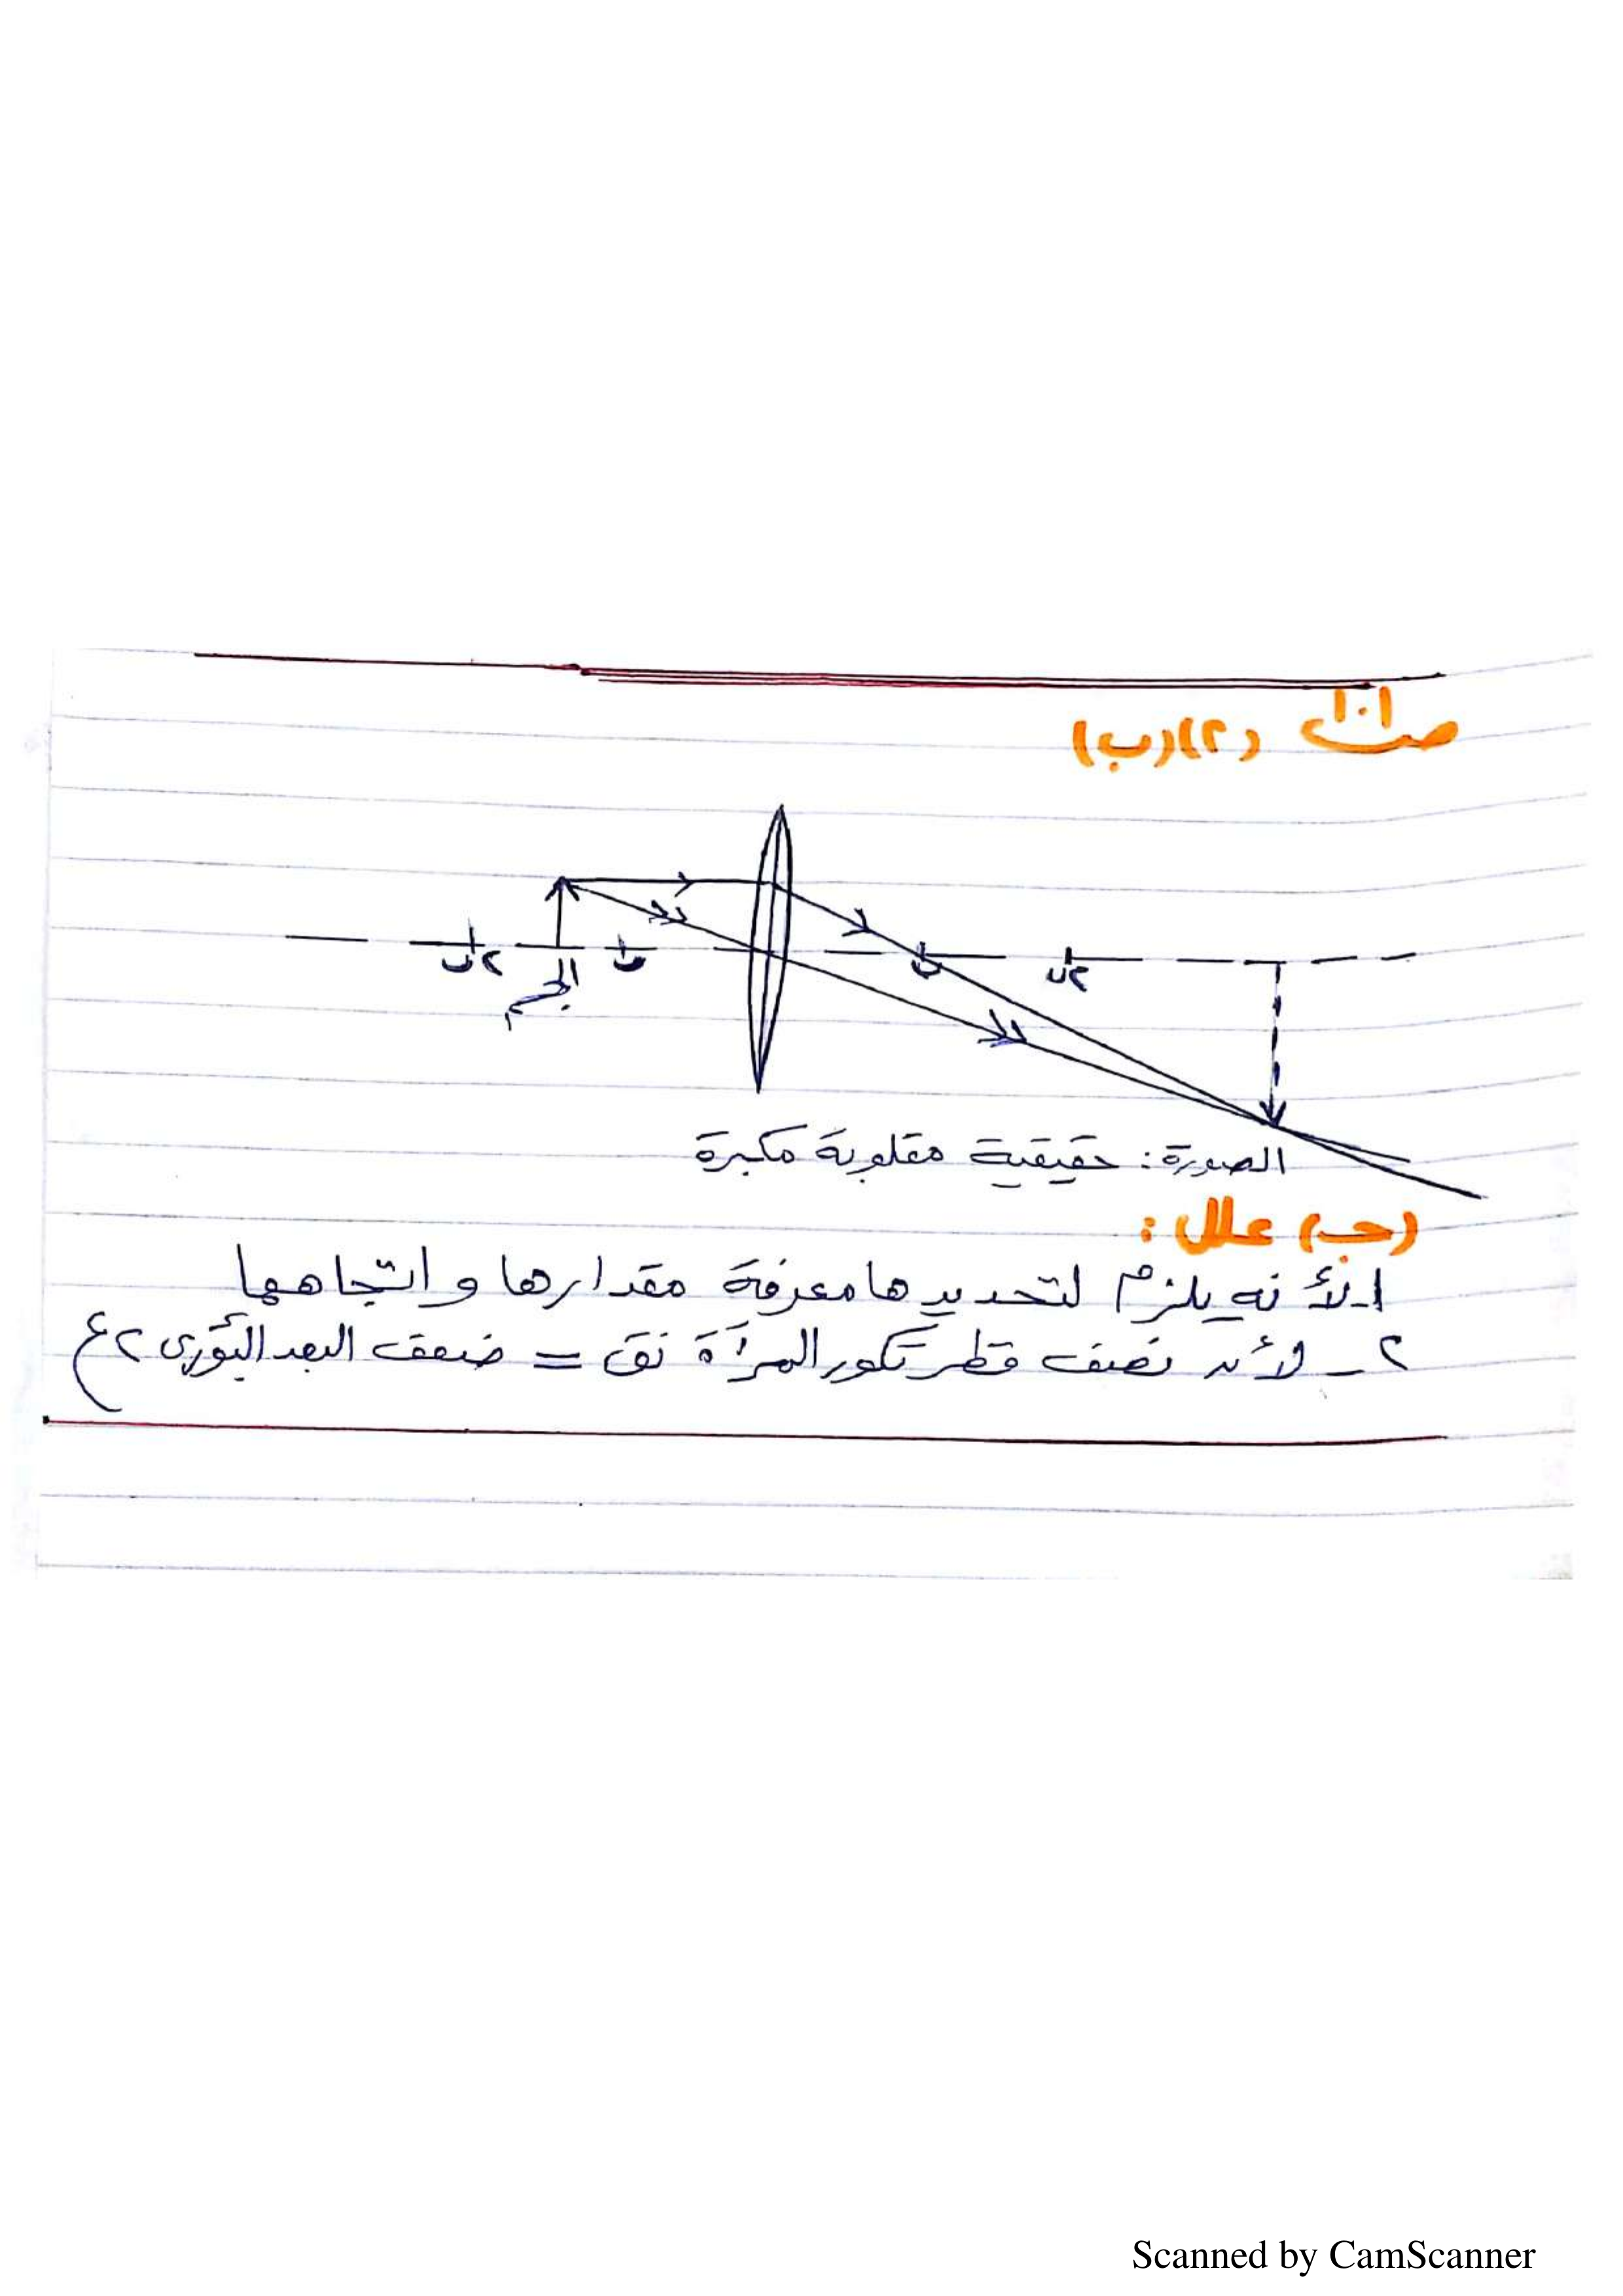 ص ١٠١ (٢)(ب)
٢ن
الجسم
ن
ن
٢ن
الصورة: حقيقية مقلوبة مكبرة
(جـ) علل:
١- لأنه يلزم لتحديدها معرفة مقدارها واتجاهها
٢- لأن نصف قطر تكور المرآة نق = ضعف البعد البؤرى ٢ع
Scanned by CamScanner